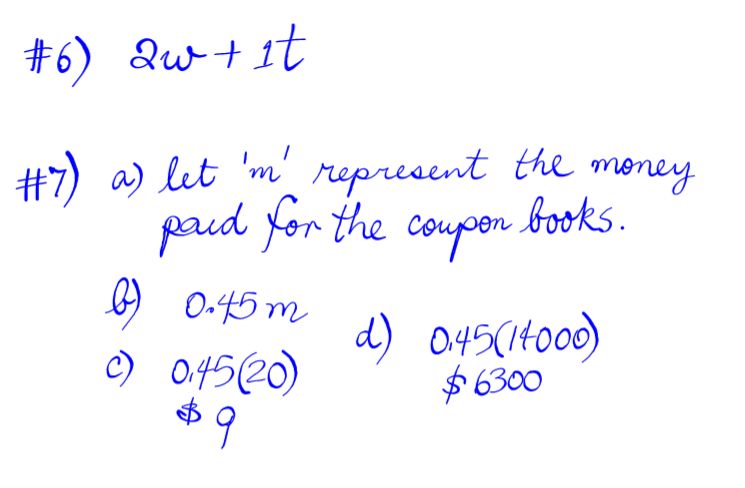 #6) 2w + 1t
#7) a) let 'm' represent the money
paid for the coupon books.
b) 0.45m
c) 0.45(20)
$9
d) 0.45(14000)
$6300